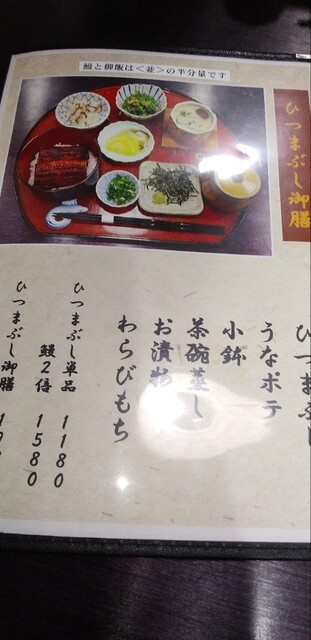 鰻と御飯は＜並＞の半分量です
ひつまぶし御膳
ひつまぶし
うなポテ
小鉢
茶碗蒸し
お漬物
わらびもち
ひつまぶし単品 1180
鰻2倍 1580
ひつまぶし御膳